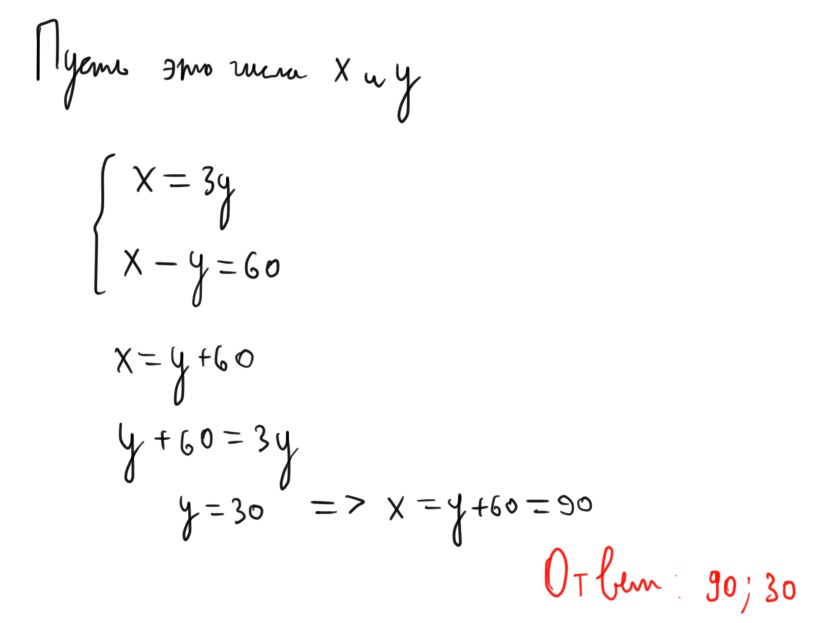 Пусть это числа x и y
x = 3y
x - y = 60
x = y + 60
y + 60 = 3y
y = 30 => x = y + 60 = 90
Ответ: 90; 30